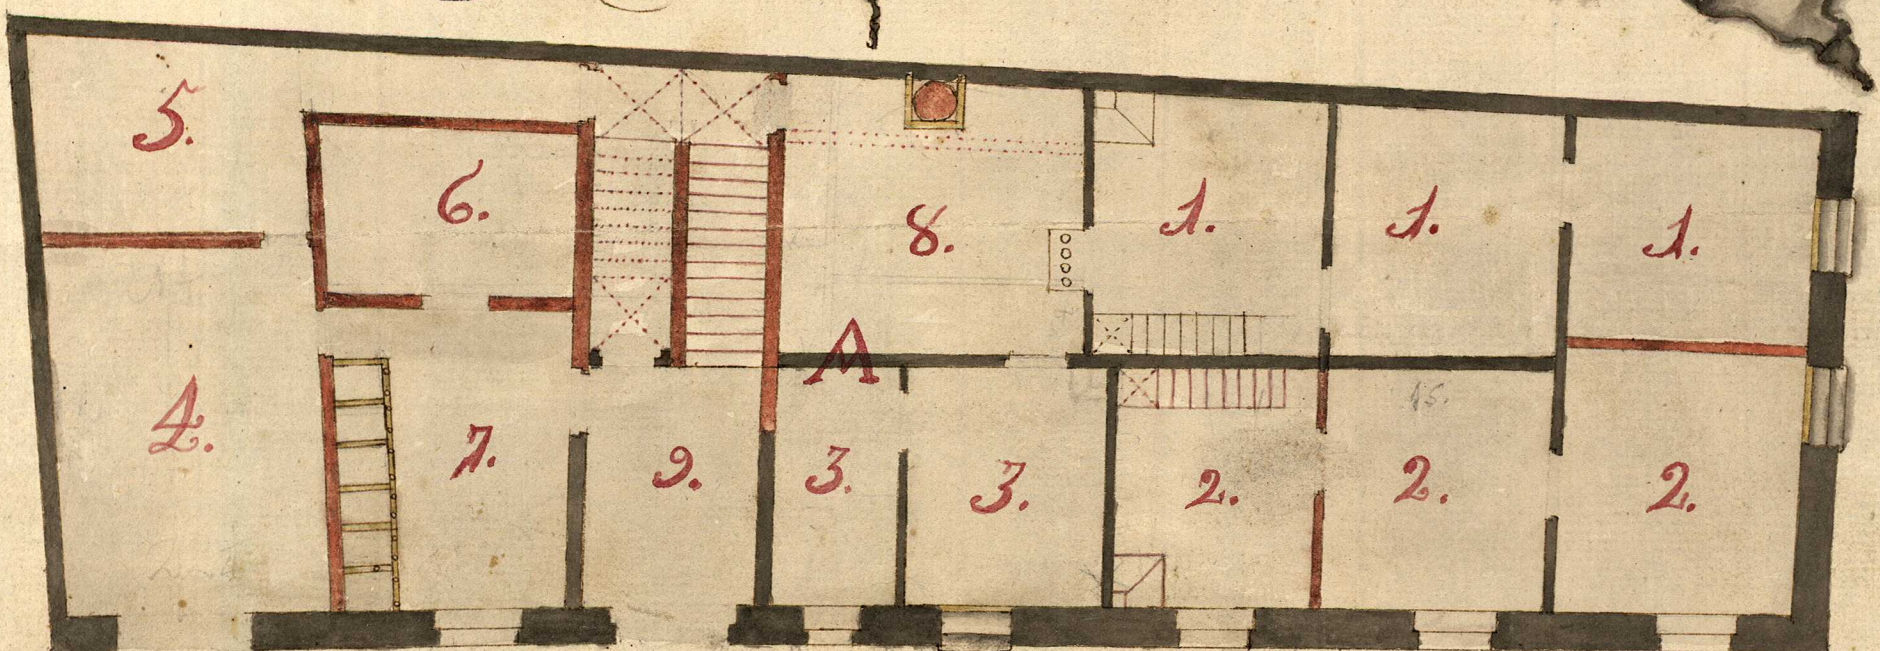 5.
6.
8.
1.
1.
1.
A
4.
7.
9.
3.
3.
2.
2.
2.
15.